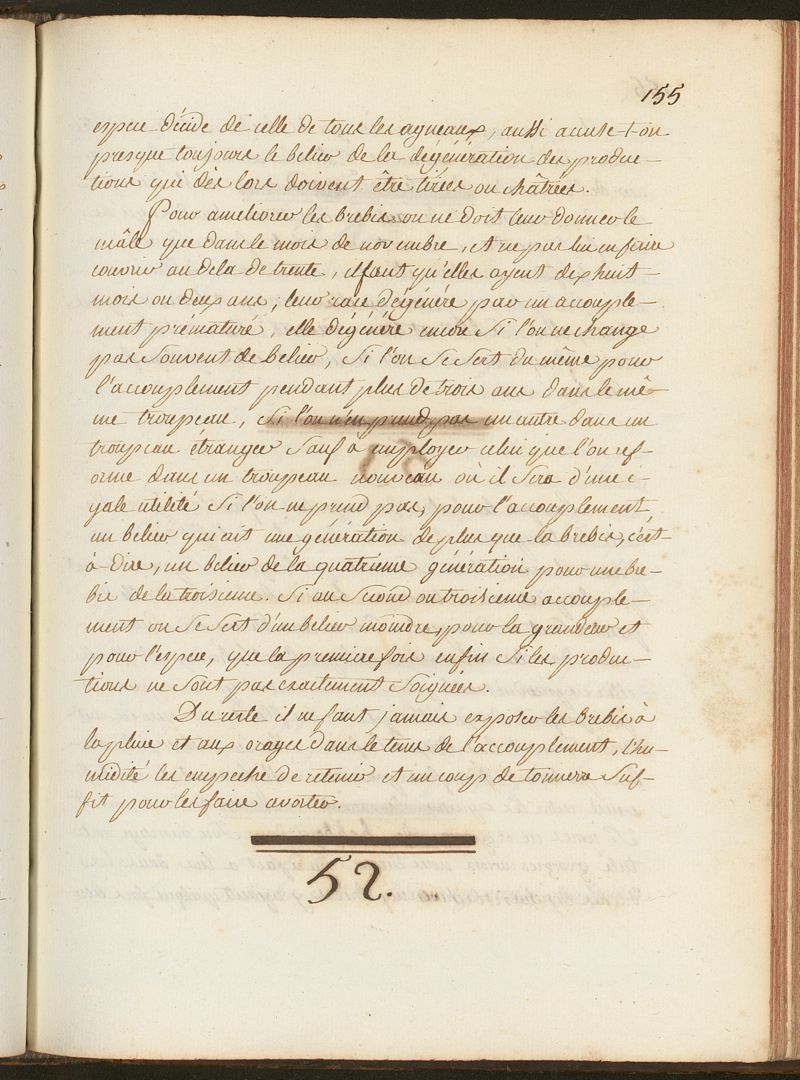 155
espece décide de celle de tous les agneaux, aussi accuse-t-on
presque toujours le belier de la dégénération des produc-
tions qui dès lors doivent être tirées ou châtrées.
Pour ameliorer les brebis on ne doit leur donner le
mâle que dans le mois de novembre, et ne pas lui en faire
couvrir au dela de trente, il faut qu'elles ayent dix huit
mois ou deux ans; leur race dégénére par un accouple-
ment prématuré, elle dégénére encore Si l'on ne change
pas Souvent de belier, Si l'on Se Sert du même pour
l'accouplement pendant plus de trois ans dans le mê-
me troupeau, Si l'on n'en prend pas un autre dans un
troupeau étranger Sauf à employer celui que l'on ref-
orme dans un troupeau nouveau où il Sera d'une é-
gale utilité Si l'on ne prend pas, pour l'accouplement
un belier qui ait une génération de plus que la brebis, c'est
à-dire, un belier de la quatrieme génération pour une bre-
bis de la troisieme. Si au Second ou troisieme accouple-
ment on Se Sert d'un belier moindre, pour la grandeur et
pour l'espece, que la premiere fois enfin Si les produc-
tions ne Sont pas exactement Soignées.
Du reste il ne faut jamais exposer les brebis à
la pluie et aux orages dans le tems de l'accouplement, l'hu-
midité les empeche de retenir et un coup de tonnerre Suf-
fit pour les faire avorter.
52.